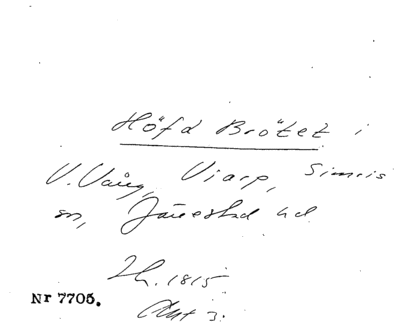 Höfd Brötet i
V. Vång, Viarp, Simris
sn, Järrestad hd
Lh. 1815.
Akt 3.
Nr 7705.